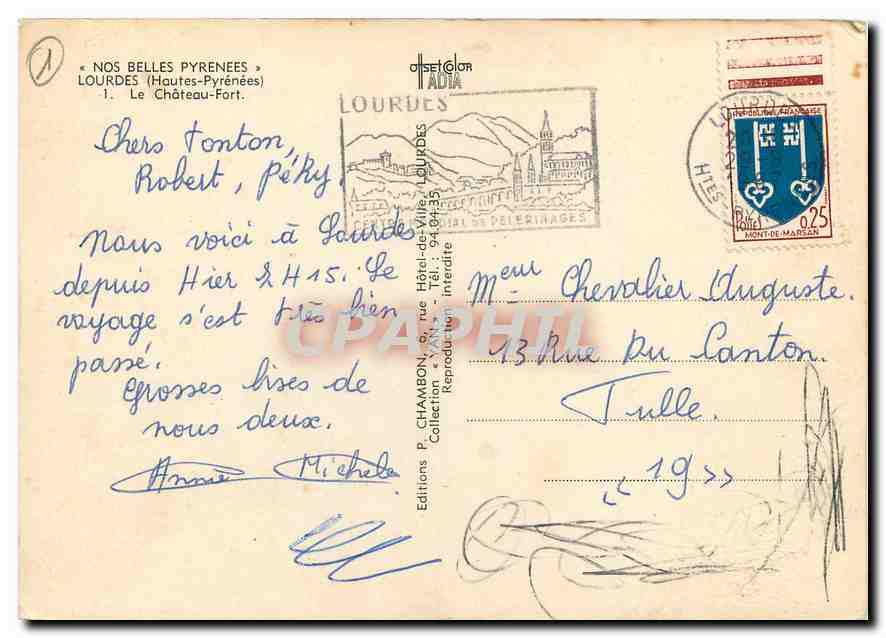 1
« NOS BELLES PYRENEES »
LOURDES (Hautes-Pyrénées)
1. Le Château-Fort.
OffsetColor
IADIA
LOURDES
DE PELERINAGES
Chers Tonton,
Robert, Péky,
Nous voici à Lourdes
depuis Hier 2H15. Le
voyage s'est très bien
passé.
Grosses bises de
nous deux.
Annie Michele
Editions P. CHAMBON, 6, rue Hôtel-de-Ville, LOURDES
Collection « YAN » - Tél. : 94.04.35
Reproduction interdite
Htes
REPUBLIQUE FRANÇAISE
Postes
0,25
MONT-DE-MARSAN
Meur Chevalier Auguste.
13 Rue Du Canton.
Tulle.
"19»
CPAPHIL